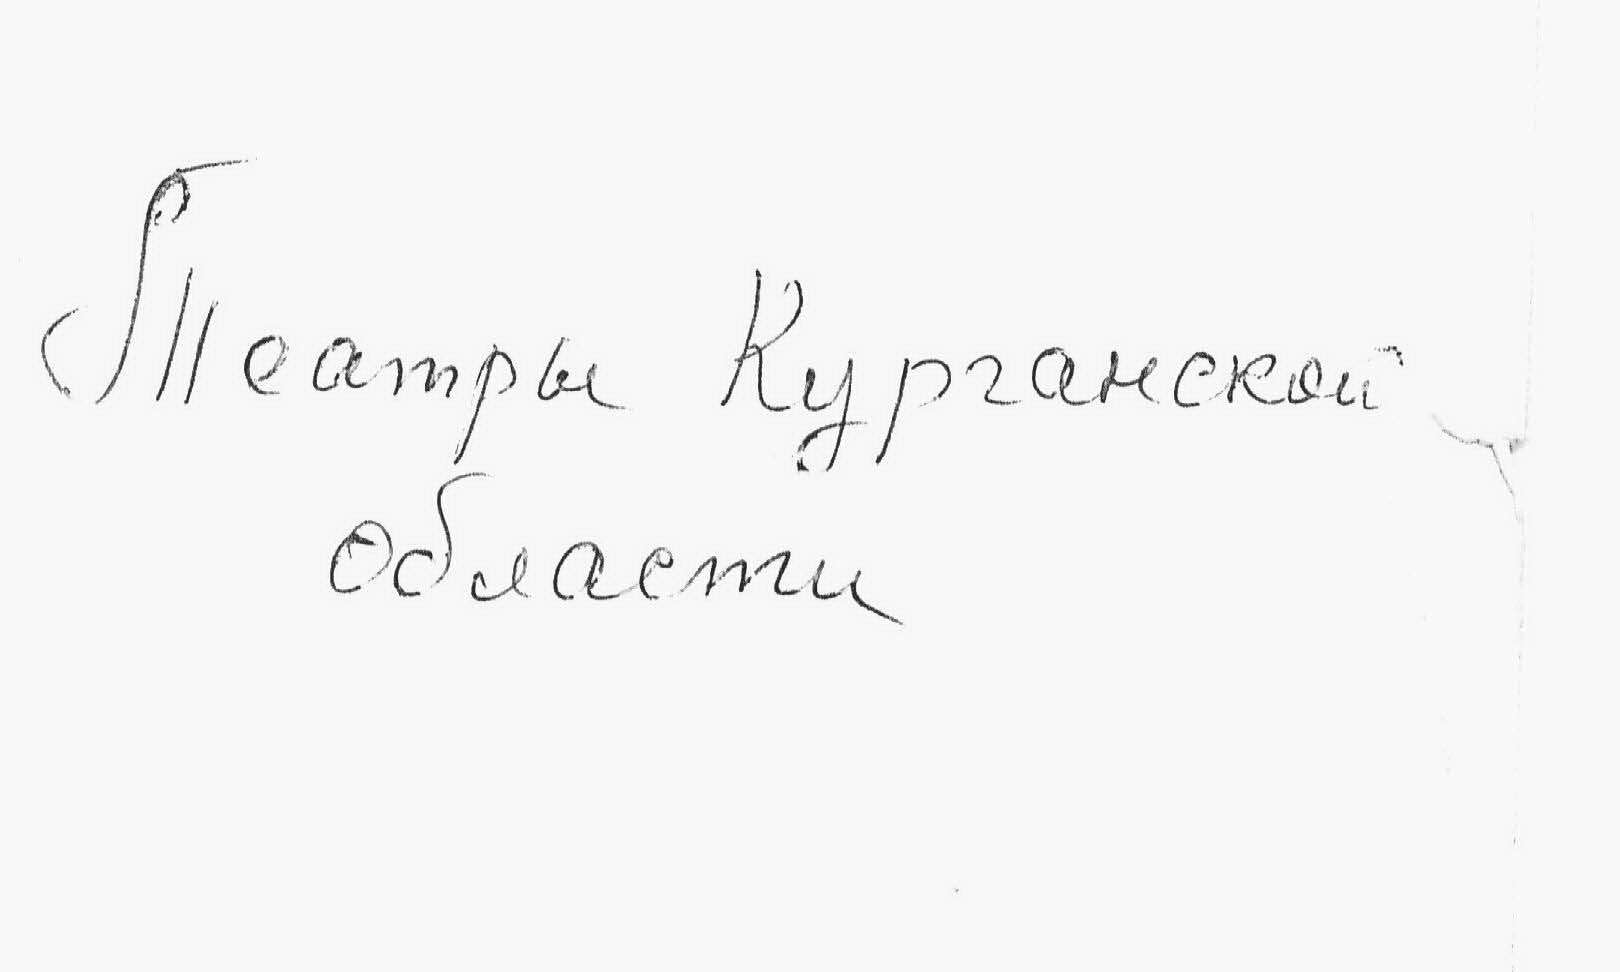 Театры Курганской
области